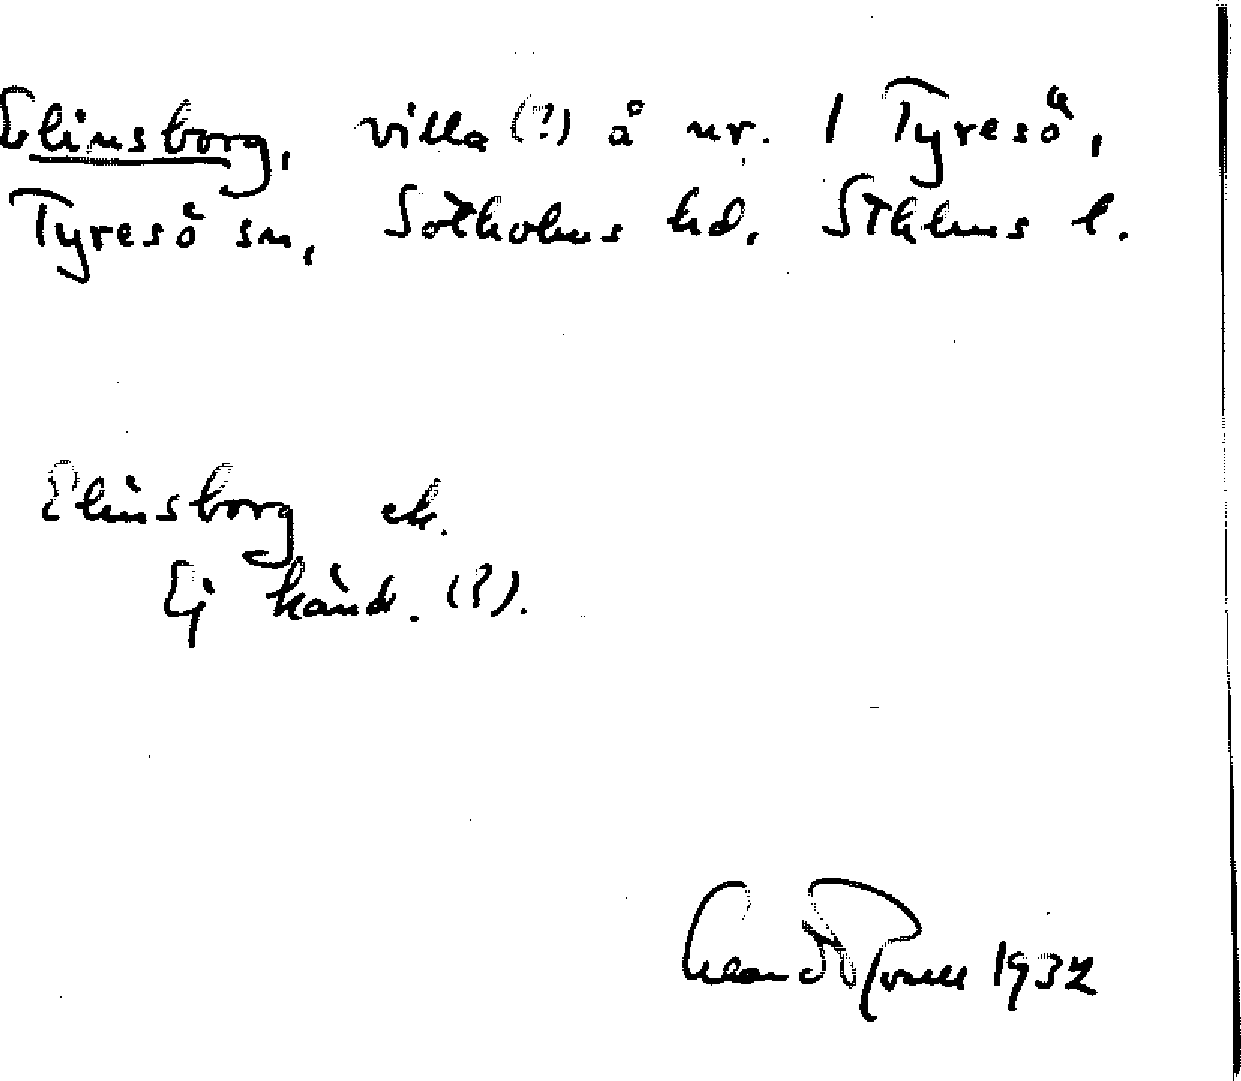 Elinsborg, villa (?) å nr. 1 Tyresö,
Tyresö sn, Sotholms hd. Sthlms l.
Elinsborg ek.
Ej känd. (?).
1932